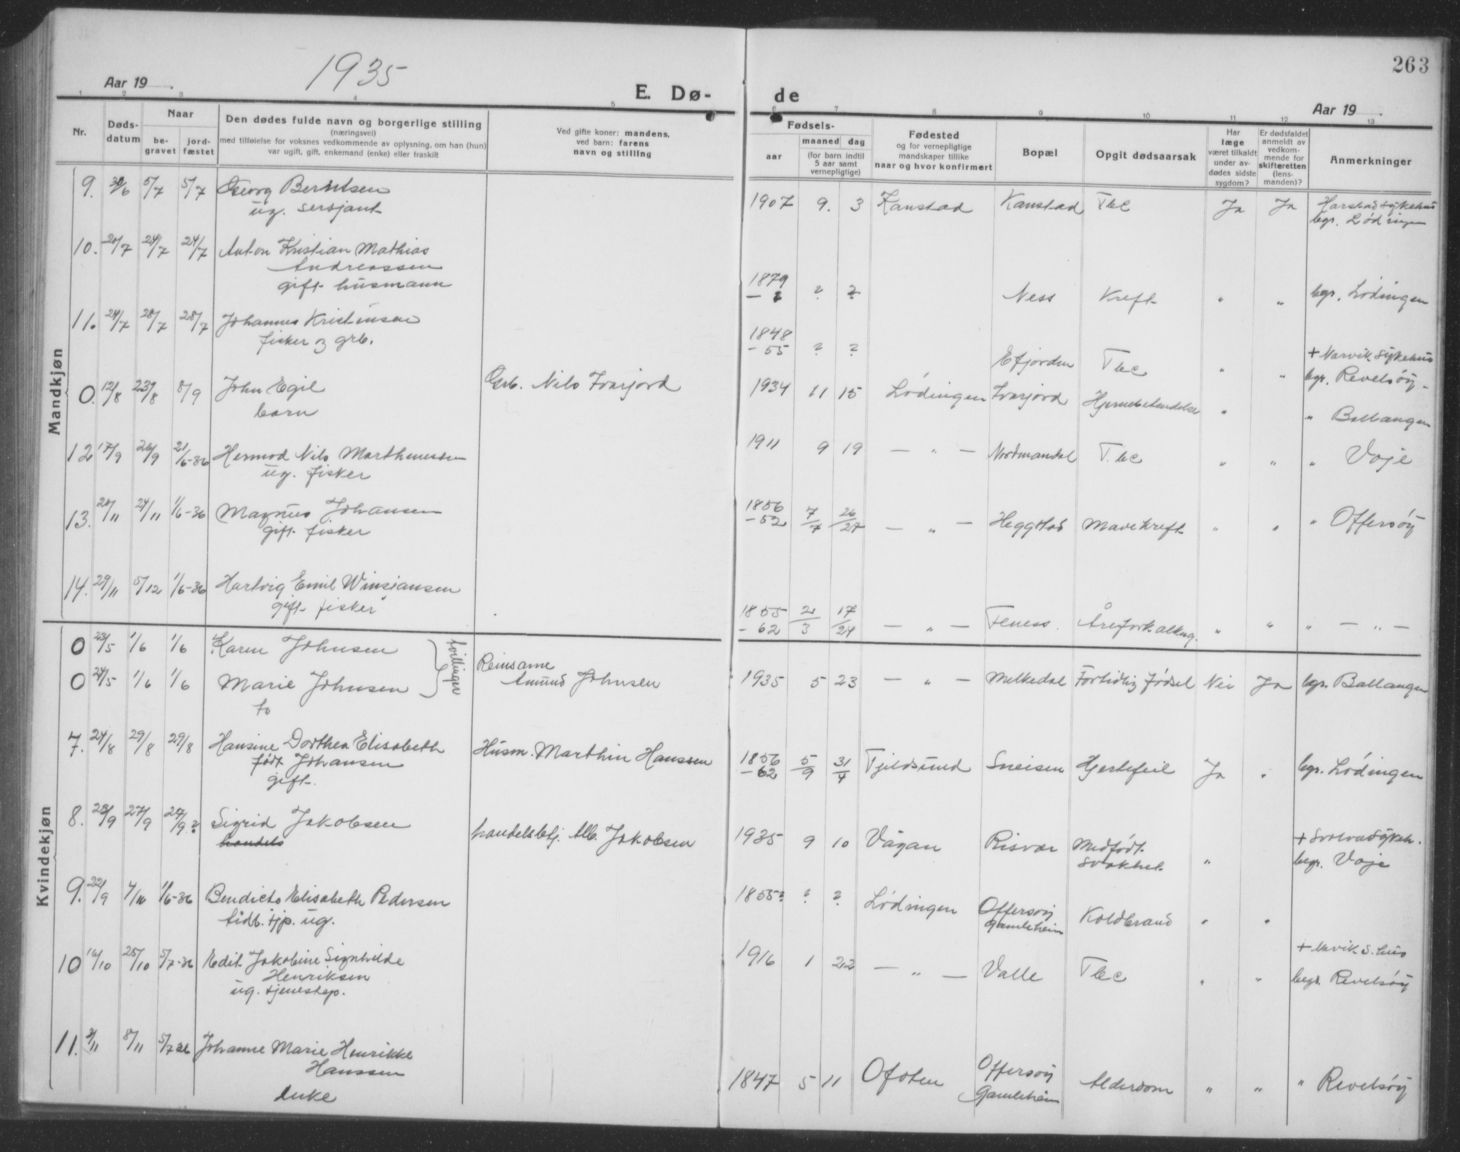 263
1935
Aar 19
E. Dø-
de
Aar 19
Nr.
Døds-
datum
Naar
be-
gravet
jord-
fæstet
Den dødes fulde navn og borgerlige stilling
(næringsvei)
med tilføielse for voksnes vedkommende av oplysning, om han (hun)
var ugift, gift, enkemand (enke) eller fraskilt
Ved gifte koner: mandens,
ved barn: farens
navn og stilling
Fødsels-
aar
maaned
dag
(for barn indtil
5 aar samt
vernepligtige)
Fødested
og for vernepligtige
mandskaper tillike
naar og hvor konfirmert
Bopæl
Opgit dødsaarsak
Har
læge
været tilkaldt
under av-
dødes sidste
sygdom?
Er dødsfaldet
anmeldt av
vedkom-
mende for
skifteretten
(lens-
manden)?
Anmerkninger
Mandkjøn
9. 5/7 5/7 Georg Berntsen 1907 9. 3 Kanstad Kanstad Tbc Ja Ja Harstad sykehus
ug. sersjant bgr. Lødingen
10. 20/7 24/7 24/7 Anton Kristian Mathias
Andreassen
gift husmann 1879 ? ? Ness Kreft " " bgr. Lødingen
11. 24/7 28/7 28/7 Johannes Kristensen
fisker og grb. 1848
-55 ? ? Efjorden Tbc " " + Narvik Sykehus
bgr. Revelsøy
0. 12/8 23/8 8/9 John Egil Grb. Nils Ivarjord 1934 11 15 Lødingen Ivarjord Hjernebetendelse " " Ballangen
barn
12 17/9 26/9 21/6-36 Hermod Nils Marthinussen 1911 9 19 — " — Nordmandal T.bc " " " Voje
ug. fisker
13. 20/11 24/11 1/6-36 Magnus Johansen 1856
-52 7/4 26/27 — " — Heggstad Mavekreft " " " Offersøy
gift fisker
14. 29/11 5/12 1/6-36 Hartvig Emil Winsjansen
gift fisker 1855
-62 2/3 17/24 — " — Feness. Åreforkalkng. " " " — " —
Kvindekjøn
0 23/5 1/6 1/6 Karen Johnsen
tvillinger
Reinsame
Amund Johnsen
0 24/5 1/6 1/6 Marie Johnsen 1935 5 23 — " — Melkedal Fortidlig fødsel Nei Ja bgr. Ballangen
7. 24/8 29/8 29/8 Hansine Dorthea Elisabeth Husm. Marthin Hanssen 1856
-62 5/9 31/4 Tjeldsund Sneisen Hjertefeil Ja " bgr. Lødingen
født Johansen
gift.
8. 23/9 27/9 27/9 ? Sigrid Jakobsen handelsbtj. Alb. Jakobsen 1935 9 10 Vågan Risvær Medfødt
svakhet " + Svolvær Sykeh.
bgr. Voje
handels
9. 22/9 7/10 1/6-36 Bendicte Elisabeth Pedersen 1855? ? ? Lødingen Offersøy
Gamleheim Koldbrand " "
tidl. tjp. ug.
10 16/10 25/10 5/7-36 Edit Jakobine Signhilde
Henriksen
ug. tjenestep. 1916 1 22 — " — Valle Tbc " " + Narvik S.hus
begr. Revelsøy
11. 2/11 8/11 5/7 36 Johanne Marie Henrikke
Hanssen
enke 1847 5 11 Ofoten Offersøy
Gamleheim Alderdom " " " Revelsøy